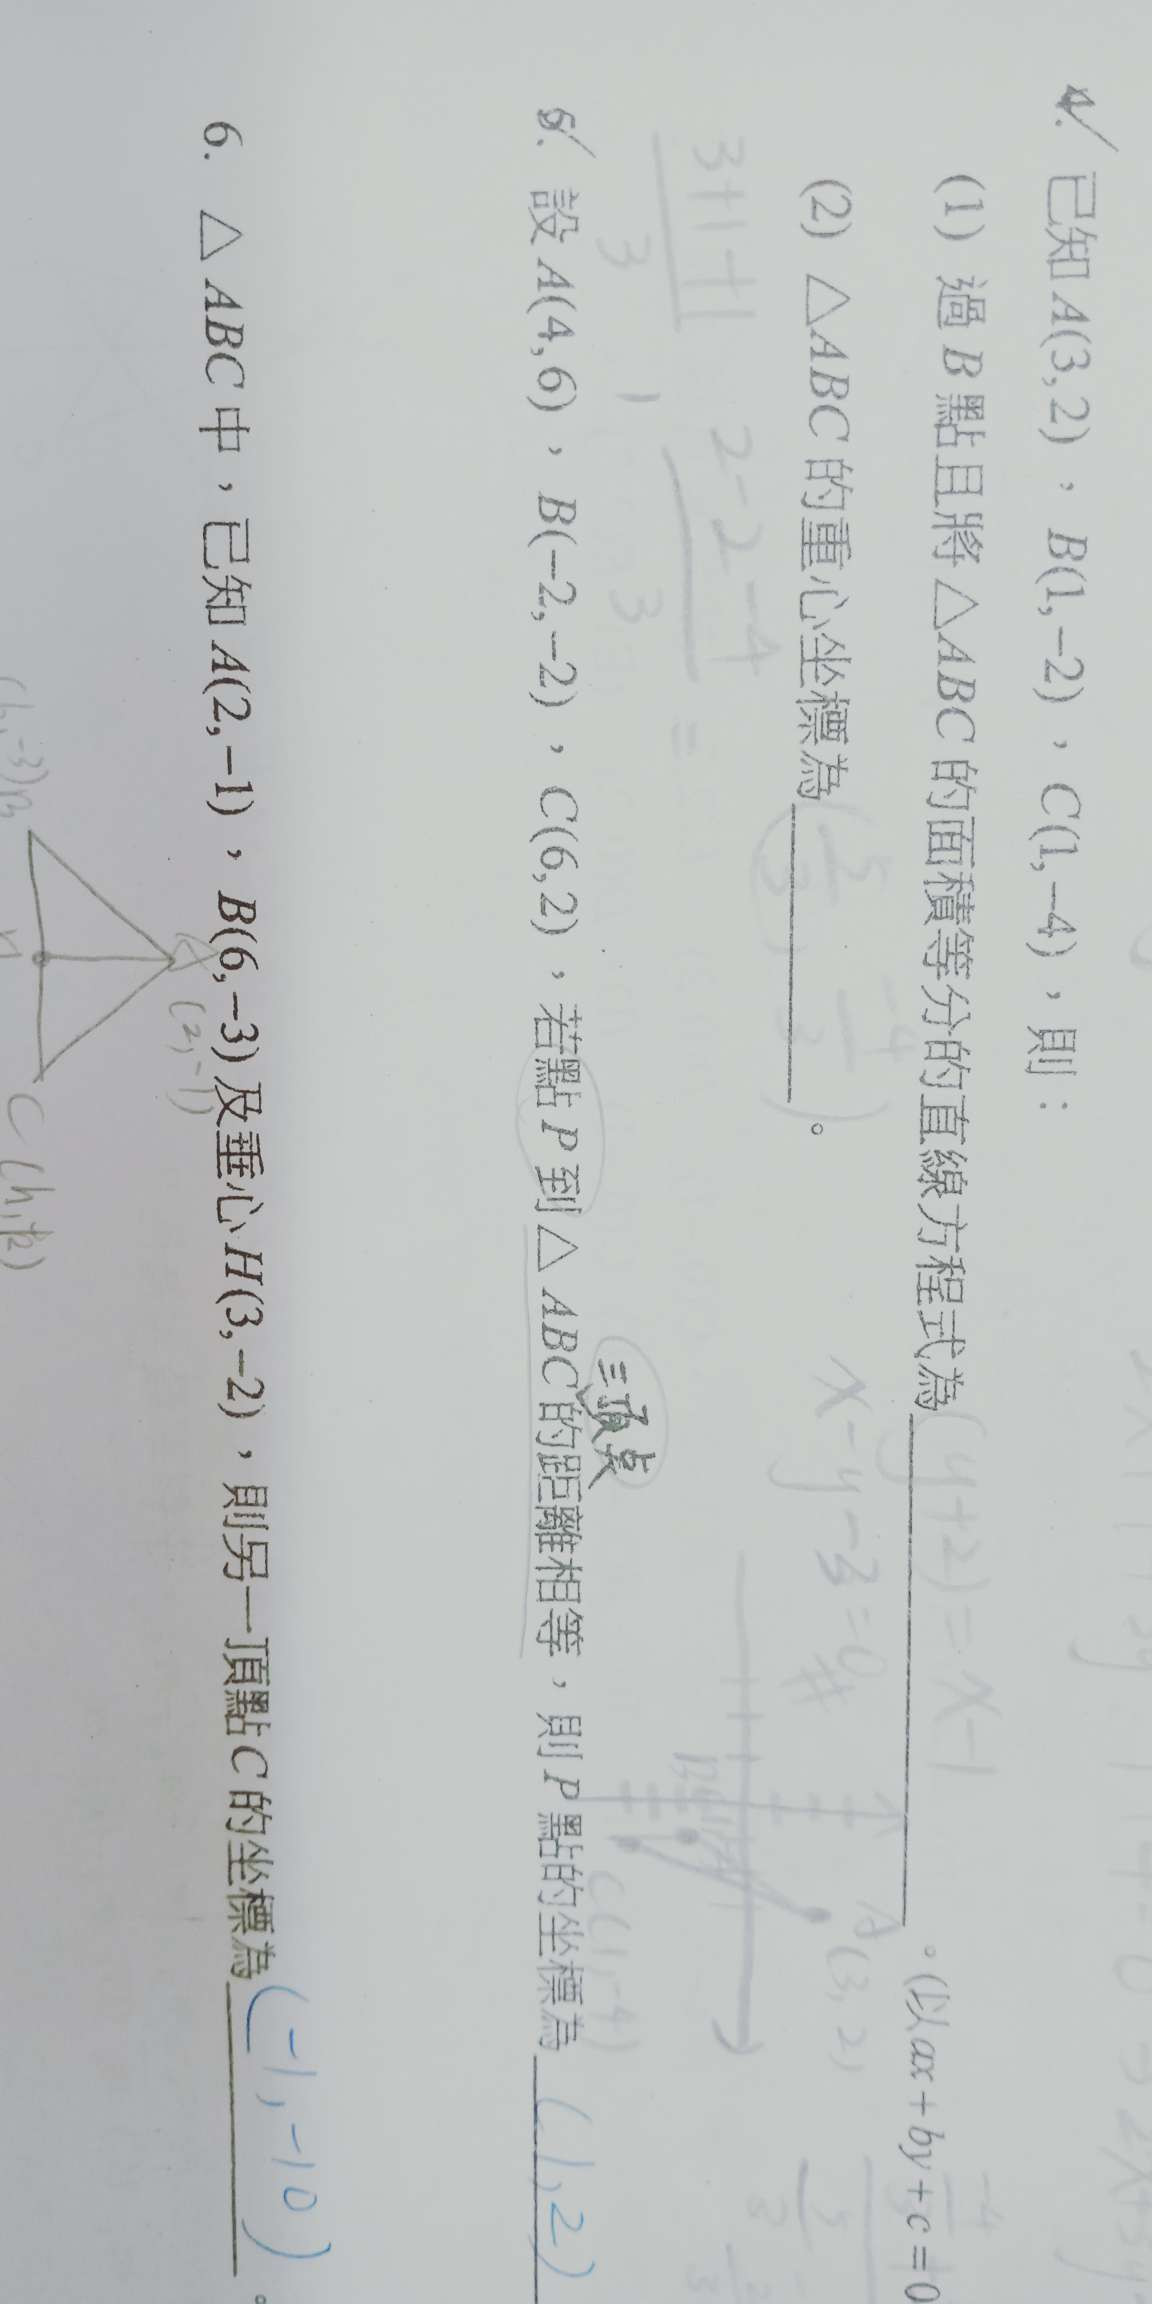 4. 已知A(3,2)，B(1,−2)，C(1,−4)，則：
(1) 過B點且將△ABC的面積等分的直線方程式為(y+2)=x-1。(以ax+by+c=0
x-y-3=0 #
A(3,2)
C(1,-4)
(2) △ABC的重心坐標為(5/3, -4/3)。
3+1+1/3, 2-2-4/3 =
三頂点
5. 設A(4,6)，B(−2,−2)，C(6,2)，若點P到△ABC的距離相等，則P點的坐標為(1,2)
6. △ABC中，已知A(2,−1)，B(6,−3)及垂心H(3,−2)，則另一頂點C的坐標為(-1,-10)。
A(2,-1)
(6,-3)B H C(h,k)